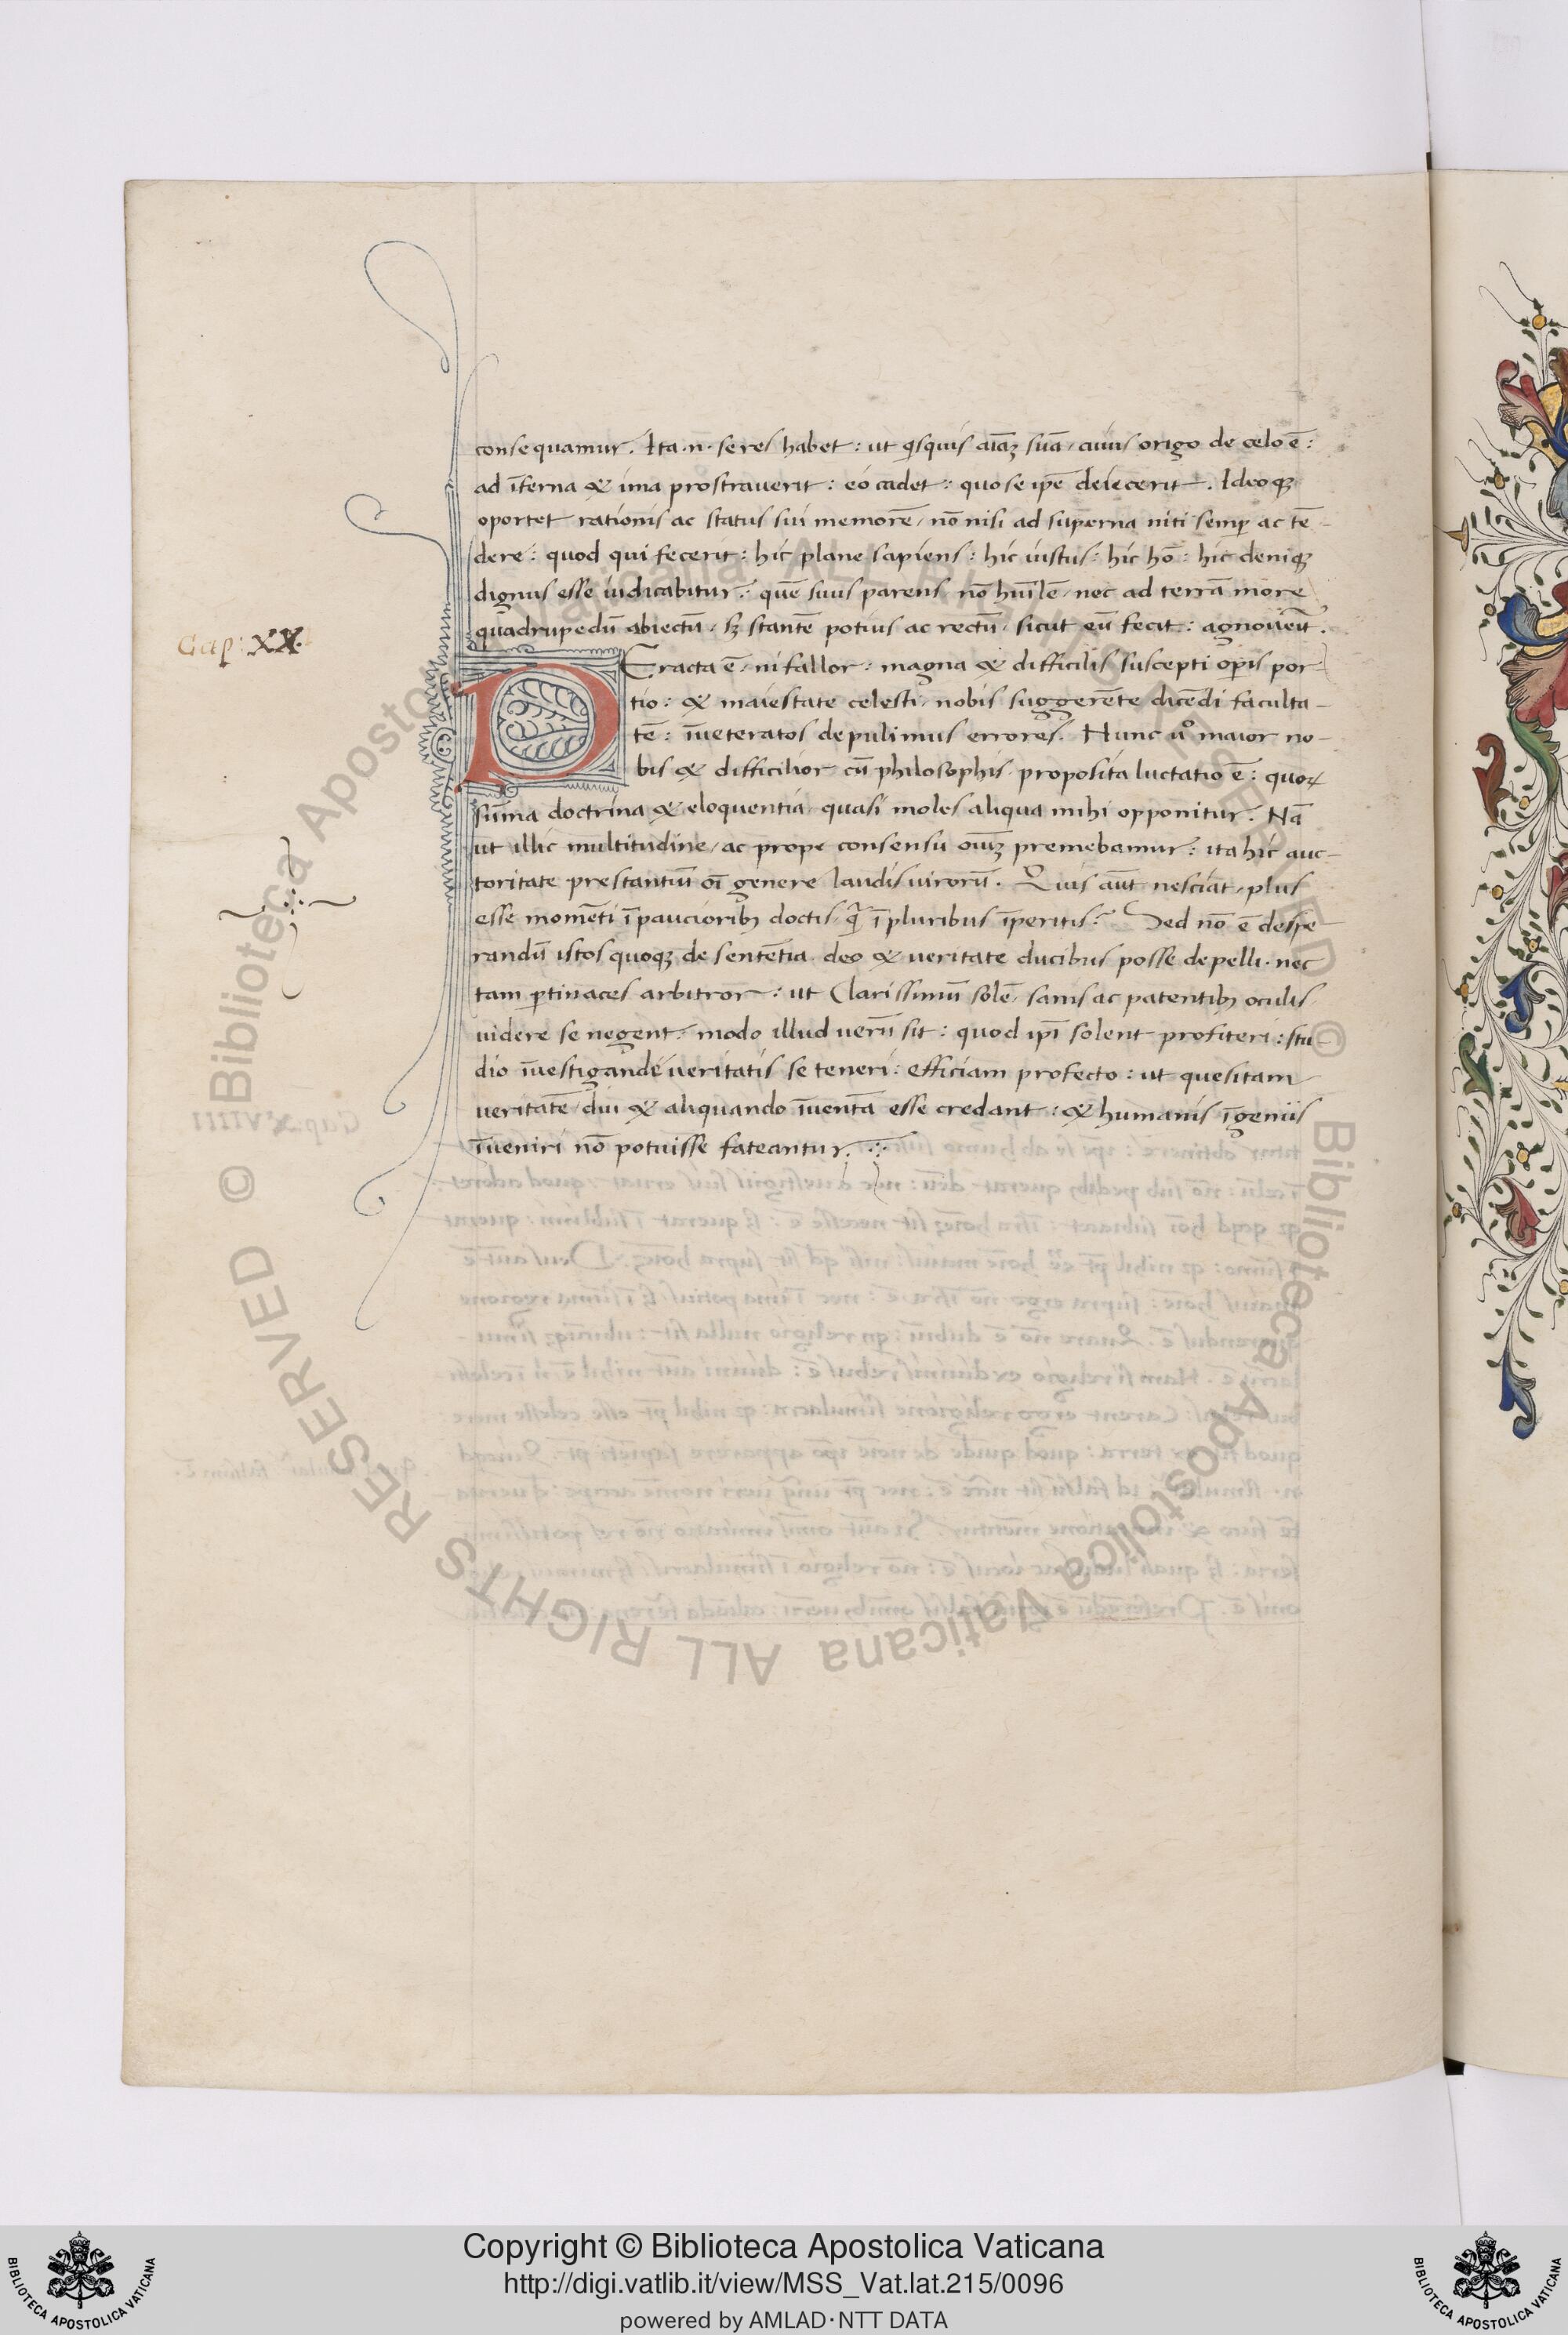 consequamur. Ita .n. se res habet : ut q̇squis aīaꝫ suā / cuius origo de celo ē :
ad īferna & ima prostraverit : eo cadet : quo se ipē deiecerit. Ideoqꝫ
oportet rationis ac status sui memorē / nō nisi ad superna niti semꝑ ac tē-
dere : quod qui fecerit : hic plane sapiens : hic iustus : hic hō : hic deniqꝫ
dignus esse iudicabitur : quē suus parens nō huīlē / nec ad terrā more
quadrupedū abiectū / sꝫ stantē potius ac rectū / sicut eū fecit : agnoverit.
Cap: XX.
PEracta ē / ni fallor : magna & difficilis suscepti opīs por-
tio : & maiestate celesti / nobis suggerēte dicēdi faculta-
tē : īveteratos depulimus errores. Nunc ů maior no-
bis & difficilior cū philosophis proposita luctatio ē : quoꝝ
sūma doctrina & eloquentia / quasi moles aliqua mihi opponitur. Nā
ut illic multitudine / ac prope consensu oīuꝫ premebamur : ita hic auc-
toritate prestantiū oī genere laudis virorū. Quis aūt nesciat / plus
esse momēti ī paucioribꝫ doctis / q̄ ī pluribus īperitis? Sed nō ē despe
randū istos quoqꝫ de sentētia deo & veritate ducibus posse depelli . nec
tam ꝑtinaces arbitror : ut Clarissimū solē / sanis ac patentibꝫ oculis
videre se negent / modo illud verū sit : quod ipī solent profiteri : stu-
dio īvestigande veritatis se teneri : efficiam profecto : ut quesitam
veritatē / diu & aliquando īventā esse credant : & humanis īgeniis
īveniri nō potuisse fateantur.
© Biblioteca Apostolica Vaticana ALL RIGHTS RESERVED © Biblioteca Apostolica Vaticana ALL RIGHTS RESERVED
Copyright © Biblioteca Apostolica Vaticana
http://digi.vatlib.it/view/MSS_Vat.lat.215/0096
powered by AMLAD·NTT DATA
BIBLIOTECA APOSTOLICA VATICANA
BIBLIOTECA APOSTOLICA VATICANA